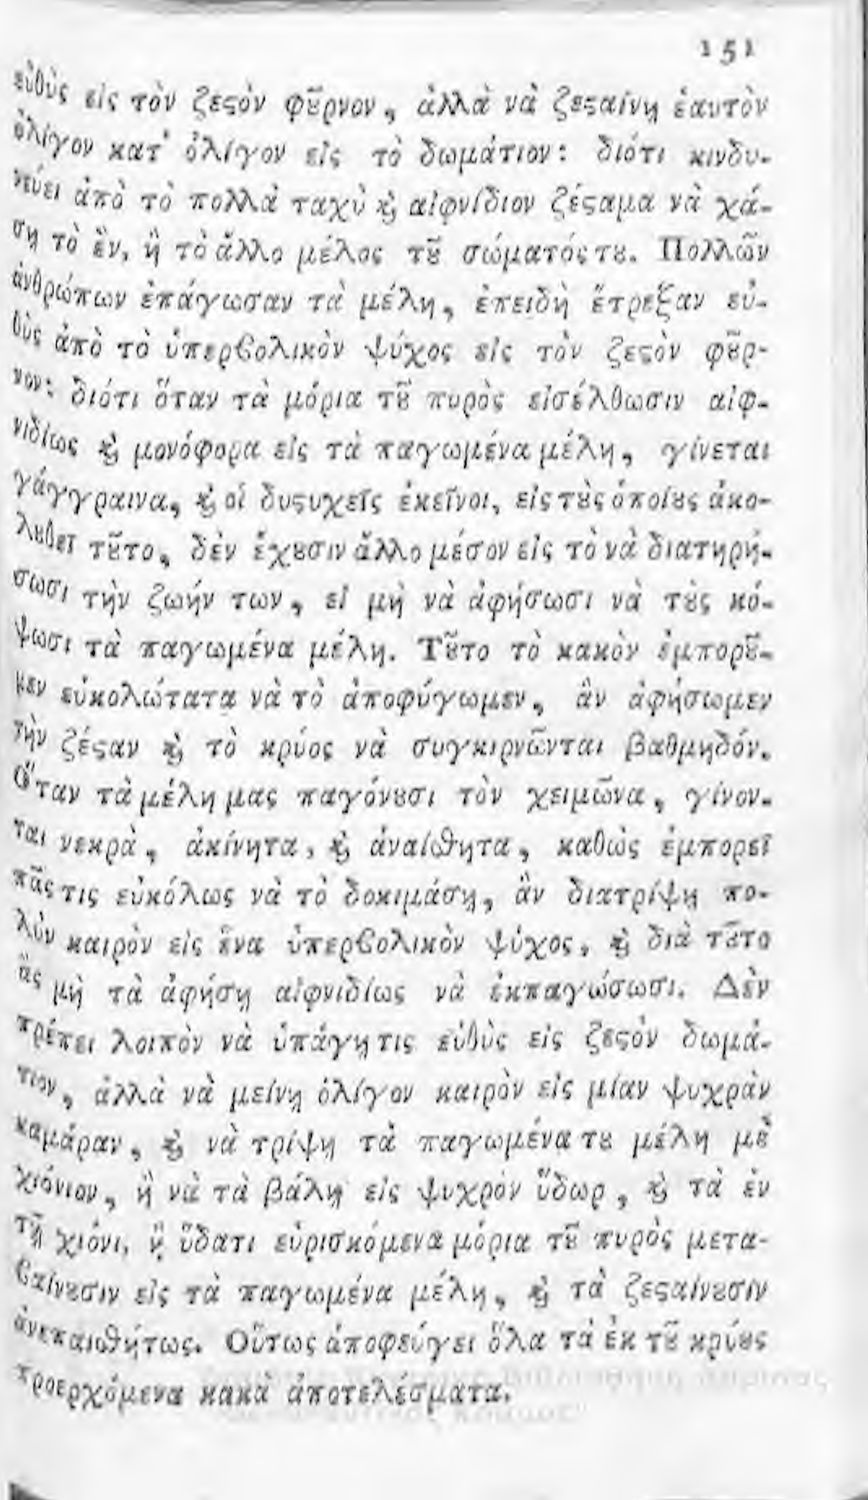 151
εὐθὺς εἰς τὸν ζεϛὸν φȣ̃ρνον, ἀλλὰ νὰ ζεϛαίνῃ ἑαυτὸν
ὀλίγον κατ᾽ ὀλίγον εἰς τὸ δωμάτιον: διότι κινδυ-
νεύει ἀπὸ τὸ πολλὰ ταχὺ ϗ̀ αἰφνίδιον ζέϛαμα νὰ χά-
σῃ τὸ ἓν, ἢ τὸ ἄλλο μέλος τȣ̃ σώματός τȣ. Πολλῶν
ἀνθρώπων ἐπάγωσαν τὰ μέλη, ἐπειδὴ ἔτρεξαν εὐ-
θὺς ἀπὸ τὸ ὑπερβολικὸν ψύχος εἰς τὸν ζεϛὸν φȣ̃ρ-
νον: διότι ὅταν τὰ μόρια τȣ̃ πυρὸς εἰσέλθωσιν αἰφ-
νιδίως ϗ̀ μονόφορα εἰς τὰ παγωμένα μέλη, γίνεται
γάγγραινα, ϗ̀ οἱ δυϛυχεῖς ἐκεῖνοι, εἰς τȣ̀ς ὁποίȣς ἀκο-
λȣθεῖ τȣ̃το, δὲν ἔχȣσιν ἄλλο μέσον εἰς τὸ νὰ διατηρή-
σωσι τὴν ζωήν των, εἰ μὴ νὰ ἀφήσωσι νὰ τȣ̀ς κό-
ψωσι τὰ παγωμένα μέλη. Τȣ̃το τὸ κακὸν ἐμπορȣ̃-
μεν εὐκολώτατα νὰ τὸ ἀποφύγωμεν, ἂν ἀφήσωμεν
τὴν ζέϛαν ϗ̀ τὸ κρύος νὰ συγκιρνῶνται βαθμηδόν.
Ὅταν τὰ μέλη μας παγόνȣσι τὸν χειμῶνα, γίνον-
ται νεκρὰ, ἀκίνητα, ϗ̀ ἀναίσθητα, καθὼς ἐμπορεῖ
πᾶς τις εὐκόλως νὰ τὸ δοκιμάσῃ, ἂν διατρίψῃ πο-
λὺν καιρὸν εἰς ἕνα ὑπερβολικὸν ψύχος, ϗ̀ διὰ τȣ̃το
ἂς μὴ τὰ ἀφήσῃ αἰφνιδίως νὰ ἐκπαγώσωσι. Δὲν
πρέπει λοιπὸν νὰ ὑπάγῃ τις εὐθὺς εἰς ζεϛὸν δωμά-
τιον, ἀλλὰ νὰ μείνῃ ὀλίγον καιρὸν εἰς μίαν ψυχρὰν
καμάραν, ϗ̀ νὰ τρίψῃ τὰ παγωμένα τȣ μέλη μὲ
χιόνιον, ἢ νὰ τὰ βάλῃ εἰς ψυχρὸν ὕδωρ, ϗ̀ τὰ ἐν
τῇ χιόνι, ἢ ὕδατι εὑρισκόμενα μόρια τȣ̃ πυρὸς μετα-
βαίνȣσιν εἰς τὰ παγωμένα μέλη, ϗ̀ τὰ ζεϛαίνȣσιν
ἀνεπαισθήτως. Οὕτως ἀποφεύγει ὅλα τὰ ἐκ τȣ̃ κρύȣς
προερχόμενα κακὰ ἀποτελέσματα.